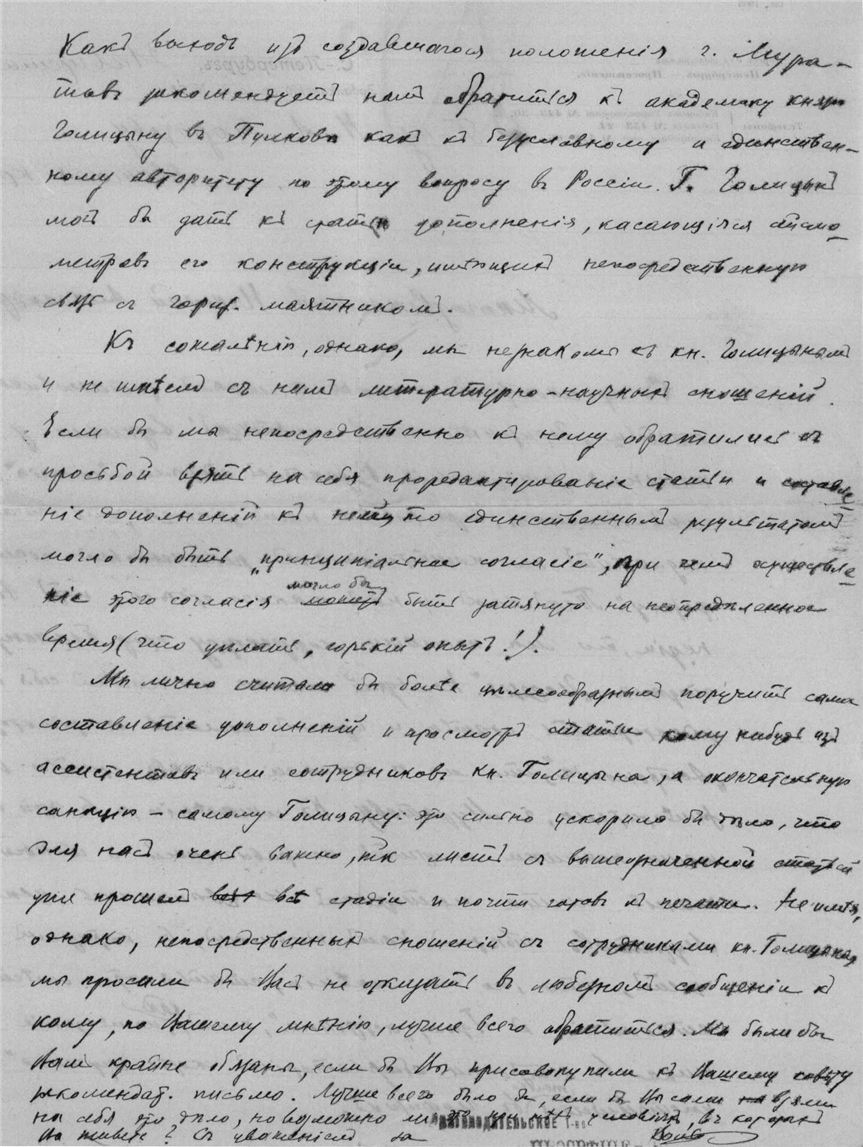 Какъ выходъ изъ создавшагося положенія г. Мура-
товъ рекомендуетъ намъ обратиться къ академику князю
Голицыну въ Пулковѣ какъ къ безусловному и единствен-
ному авторитету по этому вопросу въ Россіи. Г. Голицынъ
могъ бы дать къ статьѣ дополненія, касающіяся сейсмо-
метровъ его конструкціи, имѣющихъ непосредственную
связь съ гориз. маятникомъ.
Къ сожалѣнію, однако, мы незнакомы съ кн. Голицынымъ
и не имѣемъ съ нимъ литературно-научныхъ сношеній.
Если бы мы непосредственно къ нему обратились съ
просьбой взять на себя проредактированіе статьи и составле-
ніе дополненій къ ней, то единственнымъ результатомъ
могло бы быть „принципіальное согласіе", при чемъ осуществле-
ніе этого согласія могло бы быть затянуто на неопредѣленное
время (что дѣлать, горькій опытъ!).
Мы лично считали бы болѣе цѣлесообразнымъ поручить само
составленіе дополненій и просмотръ статьи кому нибудь изъ
ассистентовъ или сотрудниковъ кн. Голицына, а окончательную
санкцію – самому Голицыну: это сильно ускорило бы дѣло, что
для насъ очень важно, тк листъ съ вышеозначенной статьей
уже прошелъ всѣ стадіи и почти готовъ къ печати. Не имѣя,
однако, непосредственныхъ сношеній съ сотрудниками кн. Голицына,
мы просили бы Васъ не отказать въ любезномъ сообщеніи къ
кому, по Вашему мнѣнію, лучше всего обратиться. Мы были бы
Вамъ крайне обязаны, если бы Вы присовокупили къ Вашему совѣту
рекомендат. письмо. Лучше всего было бы, если бы Вы сами взяли
на себя это дѣло, но возможно ли это при человѣкѣ, въ которомъ
Вы живете? Съ уваженіемъ за